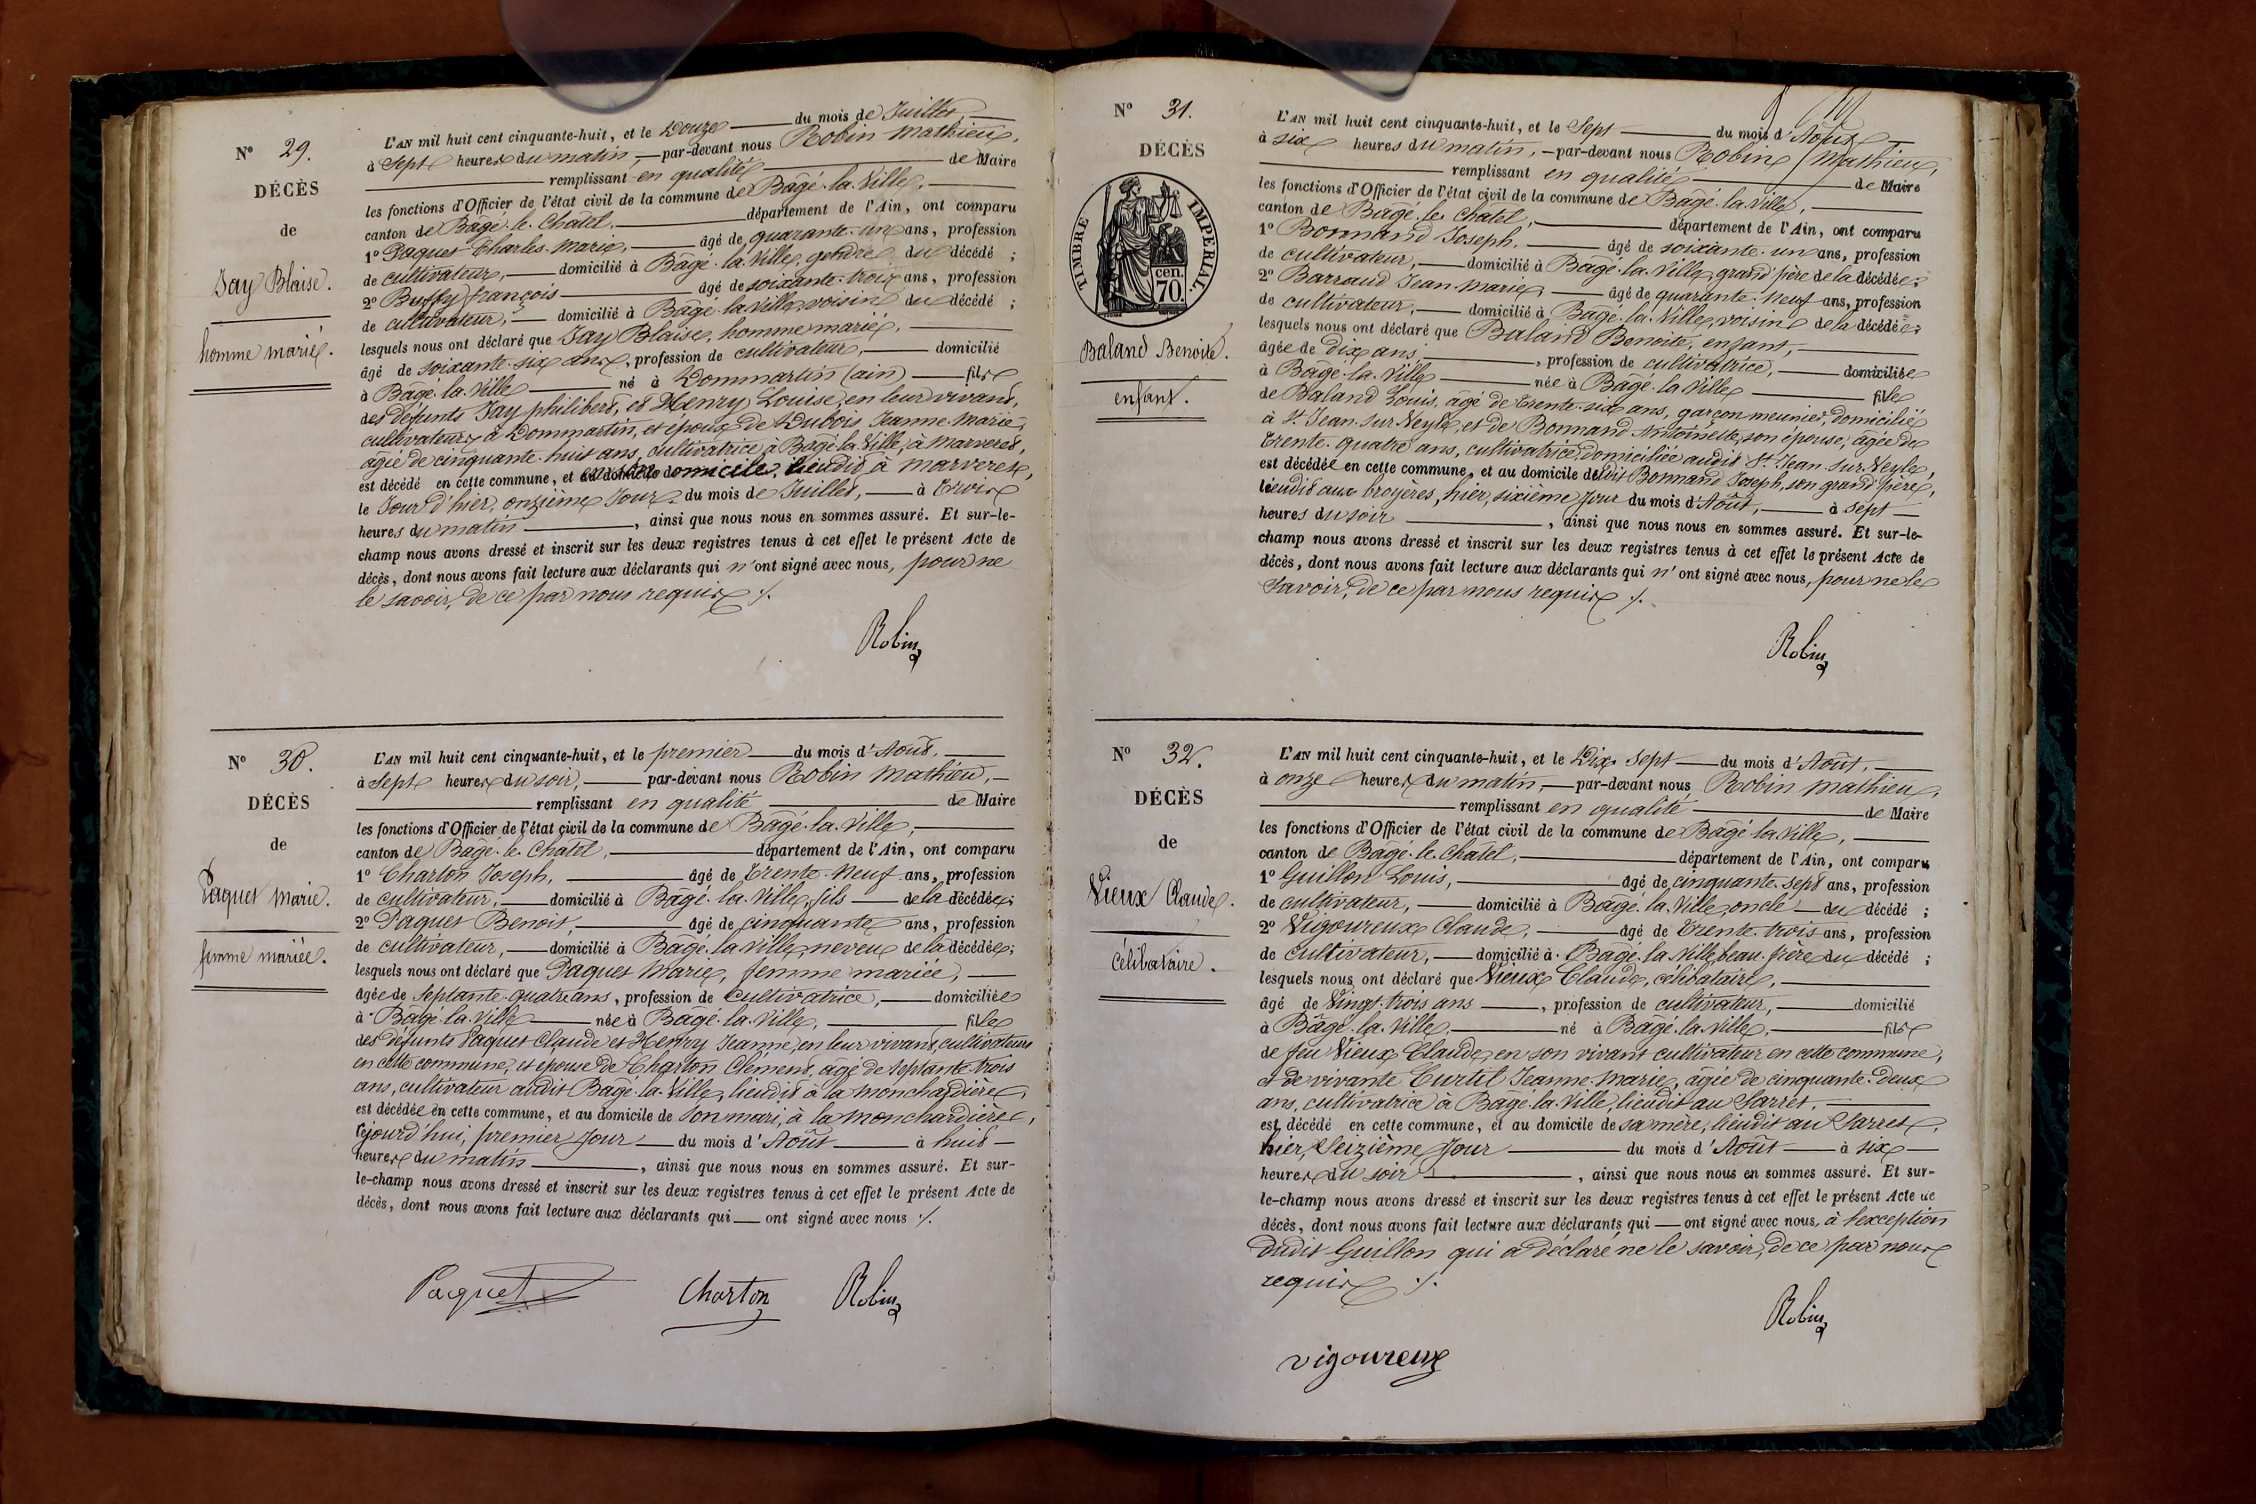 N° 29.
DÉCÈS
de
Jay Blaise.
homme marié.
L'AN mil huit cent cinquante-huit, et le Douze du mois de Juillet,
à Sept heures du matin, par-devant nous Robin Mathieu,
remplissant en qualité de Maire
les fonctions d'Officier de l'état civil de la commune de Bâgé-la-Ville,
canton de Bâgé-le-Chatel, département de l'Ain, ont comparu
1° Paquet Charles-Marie, âgé de quarante-un ans, profession
de cultivateur, domicilié à Bâgé-la-Ville, gendre du décédé ;
2° Buffy françois âgé de soixante-trois ans, profession
de cultivateur, domicilié à Bâgé-la-Ville, voisin du décédé ;
lesquels nous ont déclaré que Jay Blaise, homme marié,
âgé de soixante-six ans, profession de cultivateur, domicilié
à Bâgé-la-Ville né à Dommartin (ain) fils
des défunts Jay philibert, et Henry Louise, en leur vivant,
cultivateurs à Dommartin, et époux de Dubois Jeanne-Marie,
âgée de cinquante-huit ans, cultivatrice à Bâgé-la-Ville, à Marveret,
est décédé en cette commune, et en son domicile, lieudit à Marveret,
le Jour d'hier, onzième Jour du mois de Juillet, à trois
heures du matin, ainsi que nous nous en sommes assuré. Et sur-le-
champ nous avons dressé et inscrit sur les deux registres tenus à cet effet le présent Acte de
décès, dont nous avons fait lecture aux déclarants qui n'ont signé avec nous, pour ne
le savoir, de ce par nous requis ./.
Robin
N° 30.
DÉCÈS
de
Paquet Marie.
femme mariée.
L'AN mil huit cent cinquante-huit, et le premier du mois d'Août,
à Sept heures du soir, par-devant nous Robin Mathieu,
remplissant en qualité de Maire
les fonctions d'Officier de l'état civil de la commune de Bâgé-la-Ville,
canton de Bâgé-le-Chatel, département de l'Ain, ont comparu
1° Charton Joseph, âgé de trente-neuf ans, profession
de cultivateur, domicilié à Bâgé-la-Ville, fils de la décédée ;
2° Paquet Benoit, âgé de cinquante ans, profession
de cultivateur, domicilié à Bâgé-la-Ville, neveu de la décédée ;
lesquels nous ont déclaré que Paquet Marie, femme mariée,
âgée de septante-quatre ans, profession de cultivatrice, domiciliée
à Bâgé-la-Ville née à Bâgé-la-Ville, fille
des défunts Paquet Claude et Henry Jeanne, en leur vivant, cultivateurs
en cette commune, et épouse de Charton Clément, âgé de septante-trois
ans, cultivateur audit Bâgé-la-Ville, lieudit à la Monchardière,
est décédée en cette commune, et au domicile de son mari, à la Monchardière,
cejourd'hui, premier Jour du mois d'Août à huit
heures du matin, ainsi que nous nous en sommes assuré. Et sur-
le-champ nous avons dressé et inscrit sur les deux registres tenus à cet effet le présent Acte de
décès, dont nous avons fait lecture aux déclarants qui ont signé avec nous ./.
Paquet Charton Robin
N° 31.
DÉCÈS
TIMBRE IMPÉRIAL.
70 cen.
Baland Benoite.
enfant.
L'AN mil huit cent cinquante-huit, et le Sept du mois d'Août
à six heures du matin, par-devant nous Robin Mathieu,
remplissant en qualité de Maire
les fonctions d'Officier de l'état civil de la commune de Bâgé-la-Ville,
canton de Bâgé-le-Chatel, département de l'Ain, ont comparu
1° Bonnand Joseph, âgé de soixante-un ans, profession
de cultivateur, domicilié à Bâgé-la-Ville, grand'père de la décédée ;
2° Barraud Jean-Marie, âgé de quarante-neuf ans, profession
de cultivateur, domicilié à Bâgé-la-Ville, voisin de la décédée ;
lesquels nous ont déclaré que Baland Benoite, enfant,
âgée de dix ans, profession de cultivatrice, domiciliée
à Bâgé-la-Ville née à Bâgé-la-Ville fille
de Baland Louis, âgé de trente-six ans, garçon meunier, domicilié
à St Jean-sur-Veyle, et de Bonnand Antoinette, son épouse, âgée de
trente-quatre ans, cultivatrice, domiciliée audit St Jean-sur-Veyle,
est décédée en cette commune, et au domicile dudit Bonnand Joseph, son grand'père,
lieudit aux broyères, hier, sixième Jour du mois d'Août, à sept
heures du soir, ainsi que nous nous en sommes assuré. Et sur-le-
champ nous avons dressé et inscrit sur les deux registres tenus à cet effet le présent Acte de
décès, dont nous avons fait lecture aux déclarants qui n'ont signé avec nous, pour ne le
savoir, de ce par nous requis ./.
Robin
N° 32.
DÉCÈS
de
Vieux Claude.
Célibataire.
L'AN mil huit cent cinquante-huit, et le Dix-sept du mois d'Août,
à onze heures du matin, par-devant nous Robin Mathieu,
remplissant en qualité de Maire
les fonctions d'Officier de l'état civil de la commune de Bâgé-la-Ville,
canton de Bâgé-le-Chatel, département de l'Ain, ont comparu
1° Guillon Louis, âgé de cinquante-sept ans, profession
de cultivateur, domicilié à Bâgé-la-Ville, oncle du décédé ;
2° Vigoureux Claude, âgé de trente-trois ans, profession
de cultivateur, domicilié à Bâgé-la-Ville, beau-frère du décédé ;
lesquels nous ont déclaré que Vieux Claude, célibataire,
âgé de Vingt-trois ans, profession de cultivateur, domicilié
à Bâgé-la-Ville, né à Bâgé-la-Ville, fils
de feu Vieux Claude, en son vivant cultivateur en cette commune,
et de vivante Curtil Jeanne-Marie, âgée de cinquante-deux
ans, cultivatrice à Bâgé-la-Ville, lieudit au Sarret,
est décédé en cette commune, et au domicile de sa mère, lieudit au Sarret,
hier, Seizième Jour du mois d'Août à six
heures du soir, ainsi que nous nous en sommes assuré. Et sur-
le-champ nous avons dressé et inscrit sur les deux registres tenus à cet effet le présent Acte de
décès, dont nous avons fait lecture aux déclarants qui ont signé avec nous, à l'exception
dudit Guillon qui a déclaré ne le savoir, de ce par nous
requis ./.
Robin
vigoureux